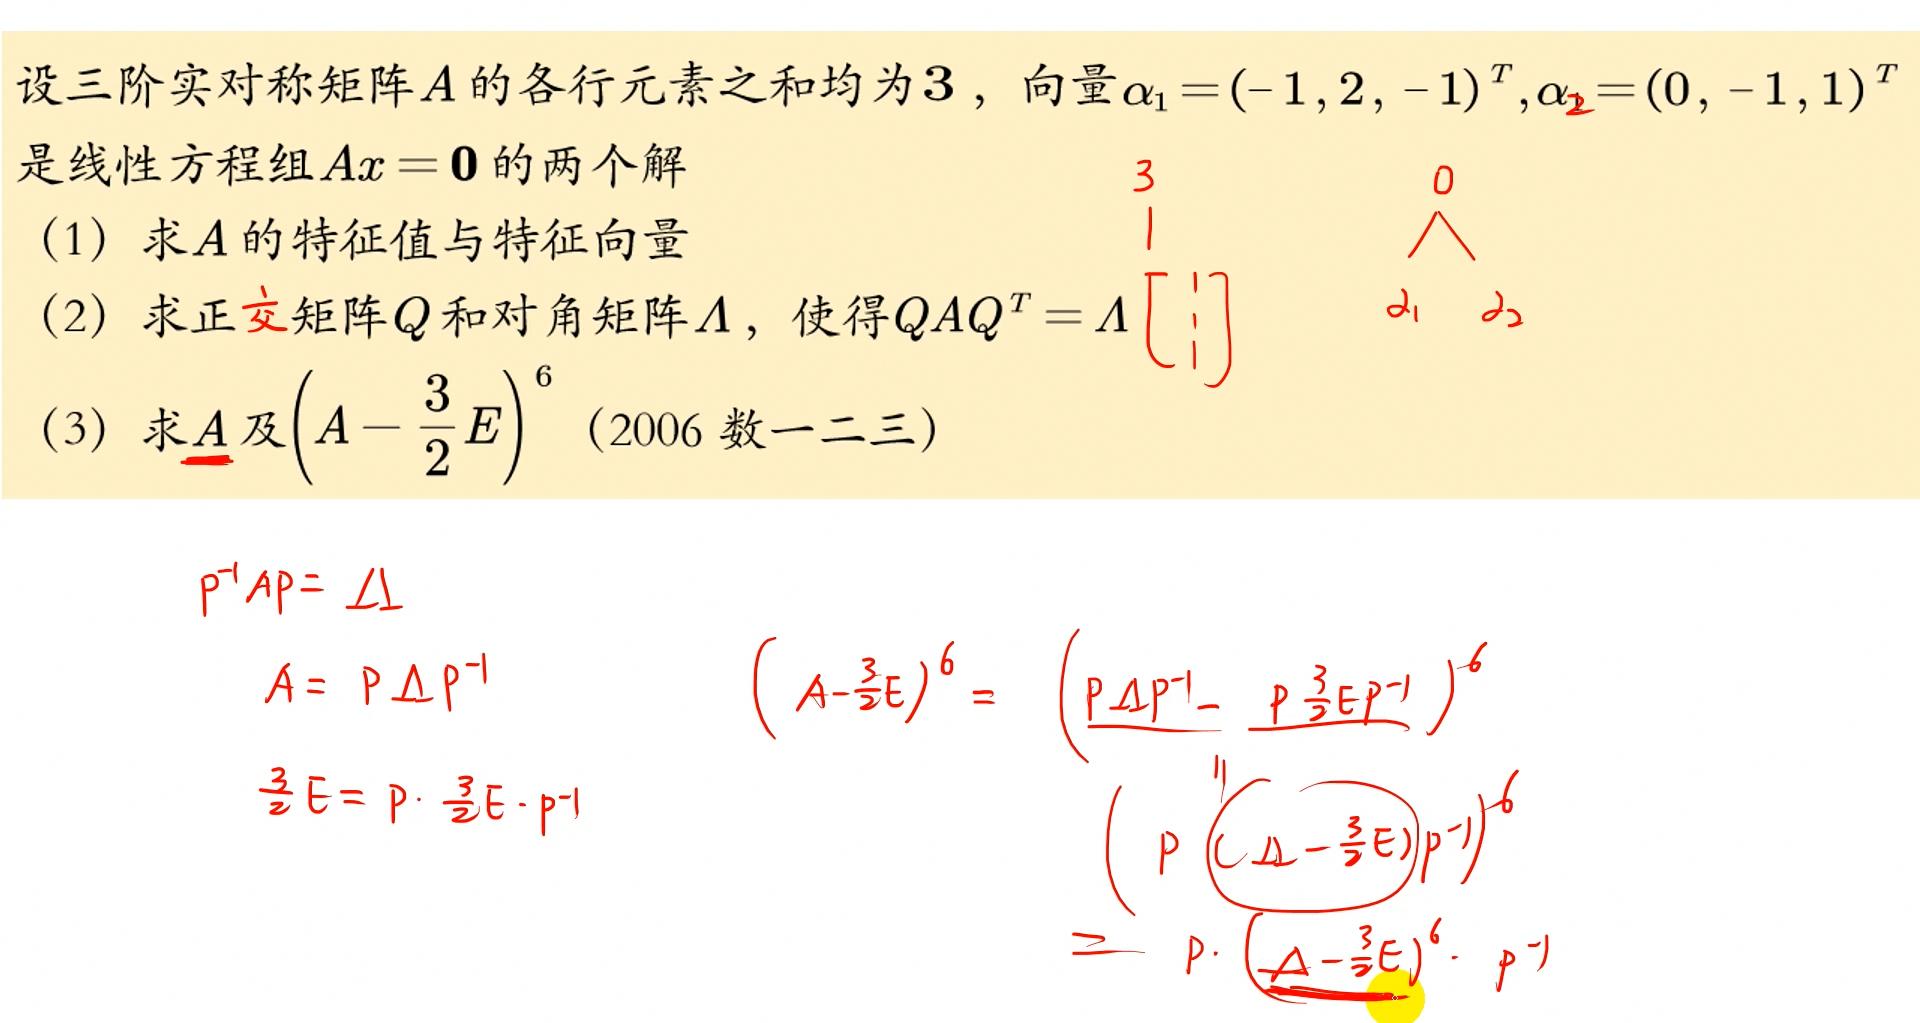 设三阶实对称矩阵A的各行元素之和均为3，向量α₁=(-1,2,-1)ᵀ,α₂=(0,-1,1)ᵀ
是线性方程组Ax=0的两个解
(1) 求A的特征值与特征向量
(2) 求正交矩阵Q和对角矩阵Λ，使得QAQᵀ=Λ
(3) 求A及(A-3/2E)⁶ (2006 数一二三)
3 0
[1 1 1] α₁ α₂
P⁻¹AP=Λ
A=PΛP⁻¹
3/2E=P·3/2E·P⁻¹
(A-3/2E)⁶=(PΛP⁻¹-P3/2EP⁻¹)⁶
=(P(Λ-3/2E)P⁻¹)⁶
=P·(Λ-3/2E)⁶·P⁻¹